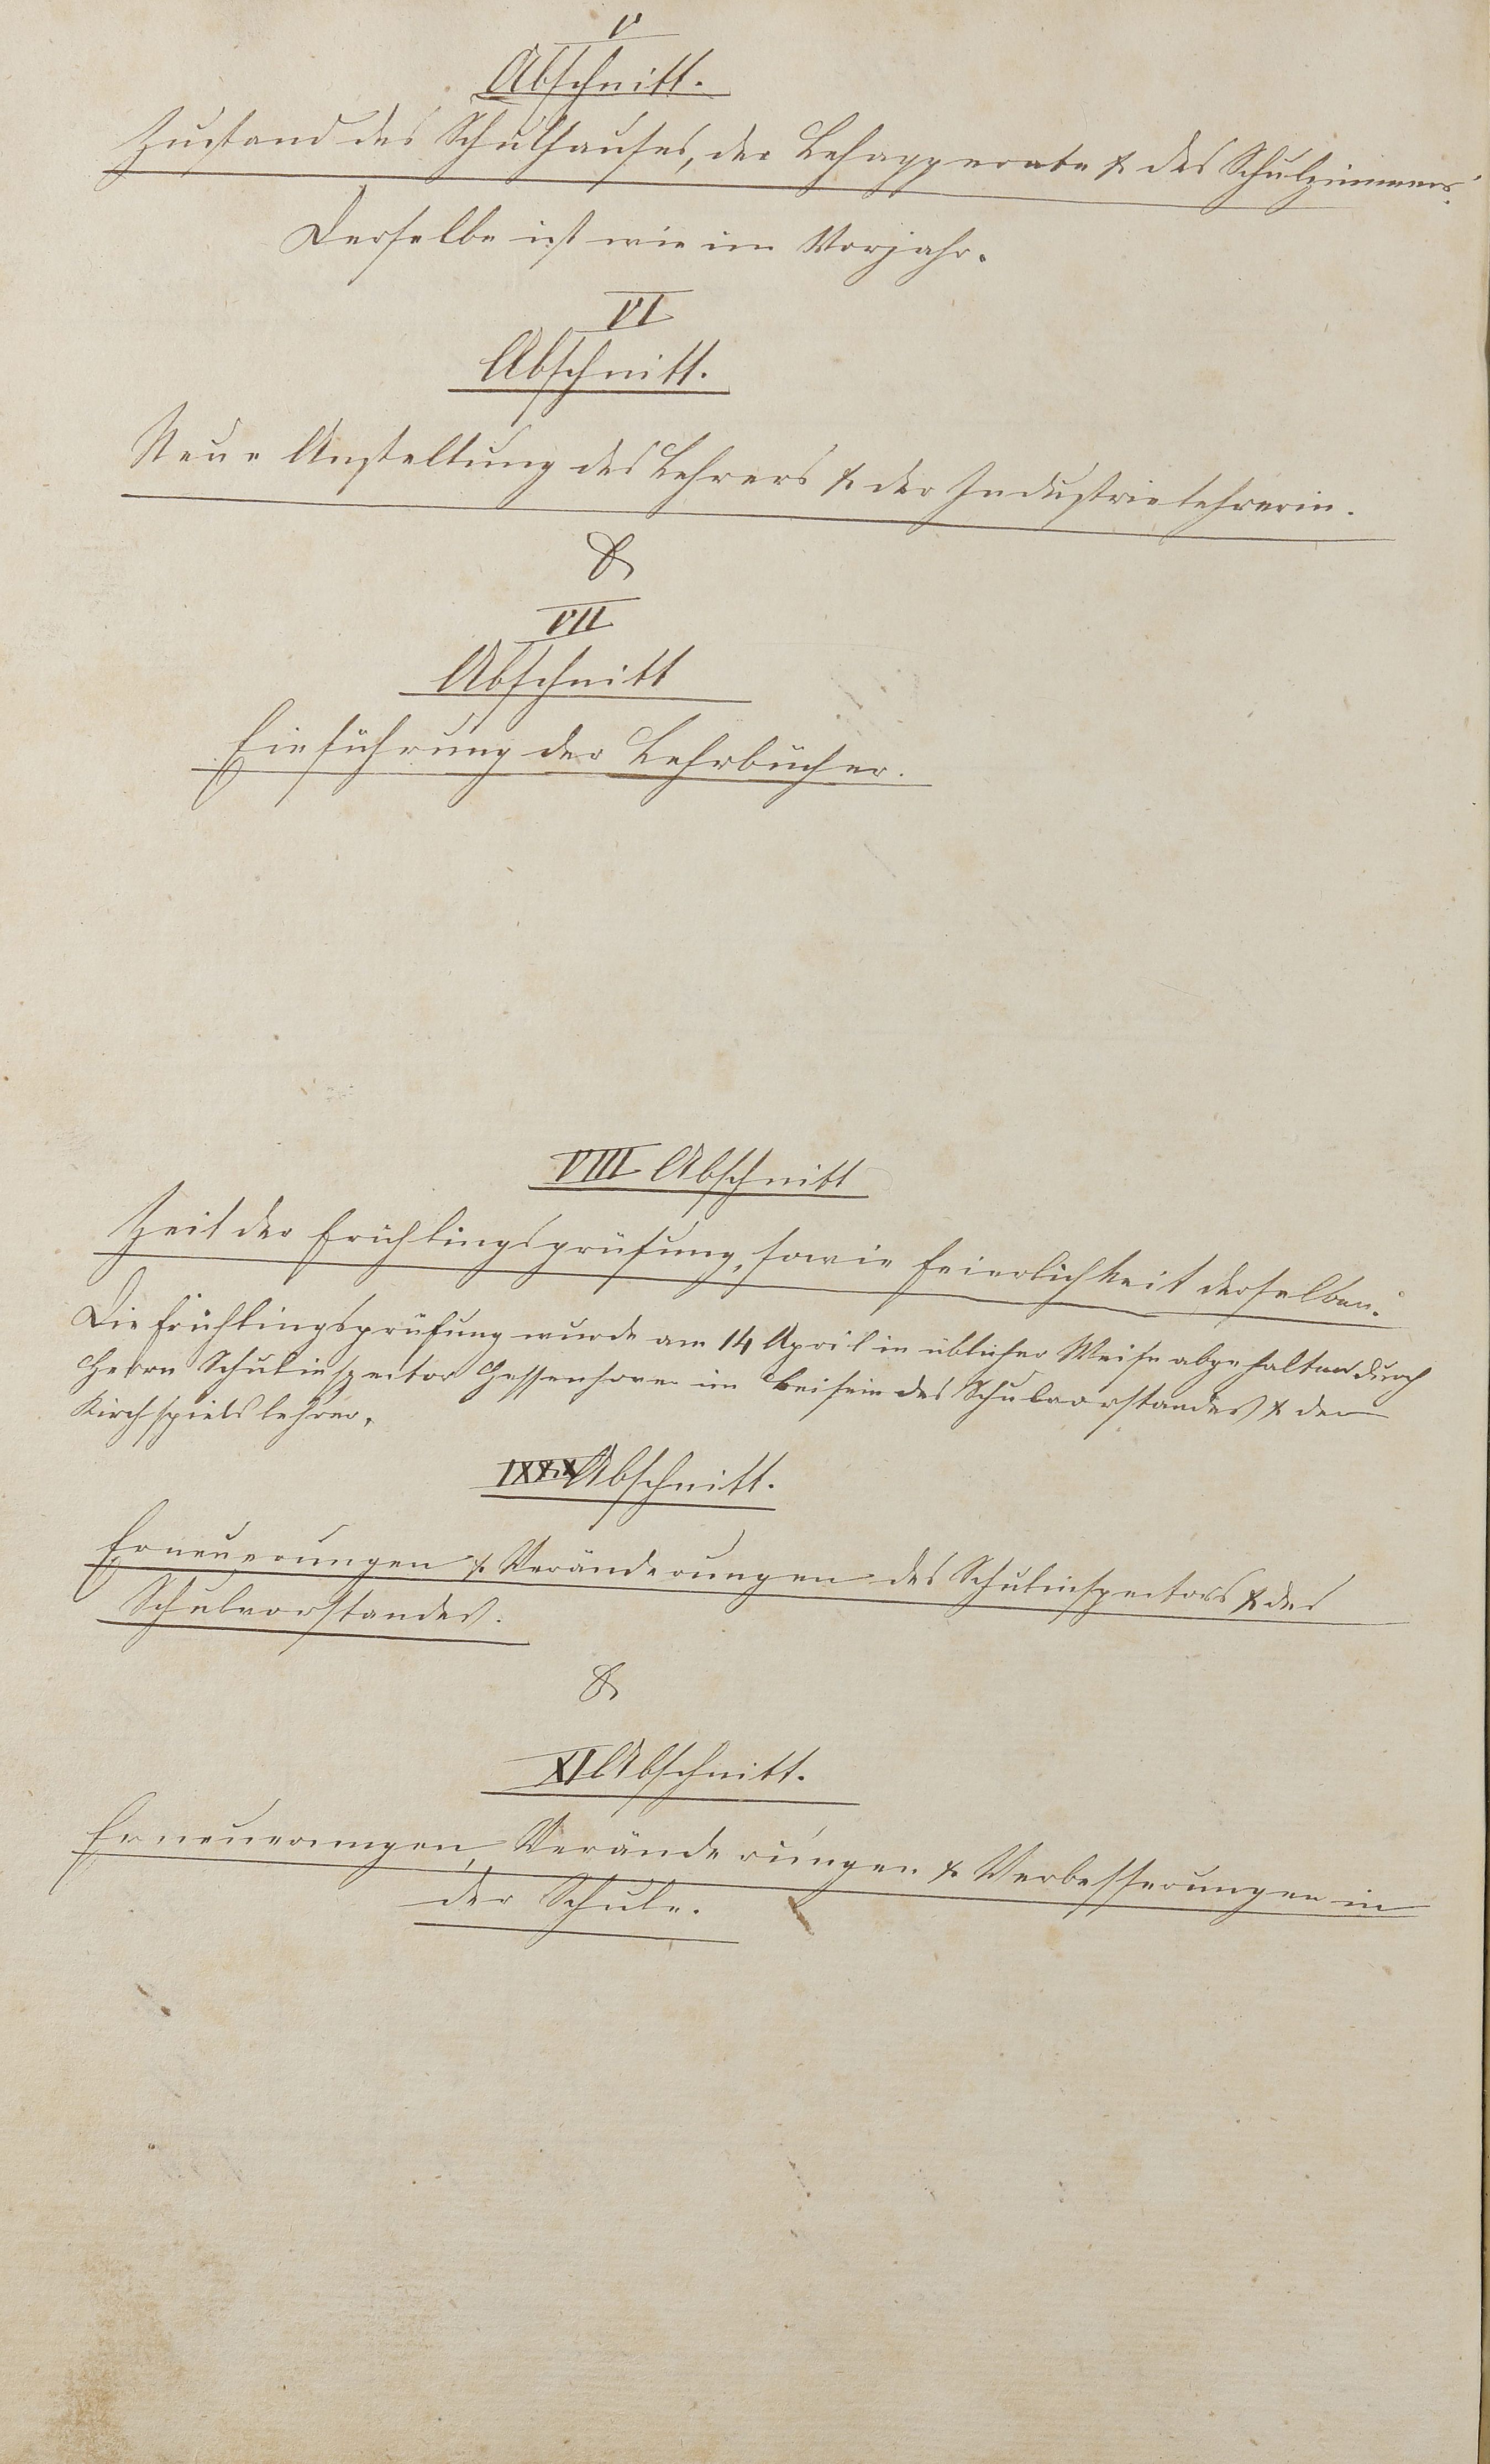 V
Abschnitt.
Zustand des Schulhauses, der Lehapperate & des Schulzimmers.
Derselbe ist wie im Vorjahr.
VI
Abschnitt.
Neue Anstellung des Lehrers & der Industrielehrerin.
&
VII
Abschnitt
Einführung der Lehrbücher.
VIII Abschnitt
Zeit der Frühlingsprüfung, sowie Feierlichkeit derselben.
Die Frühlingsprüfung wurde am 14 April in üblicher Weise abgehalten durch
Herrn Schulinspector im Beisein des Schulvorstandes & der
Kirchspielslehrer.
Abschnitt.
Erneuerungen & Veränderungen des Schulinspectors & des
Schulvorstandes.
&
XI Abschnitt.
Erneuerungen, Veränderungen & Verbesserungen in
der Schule.